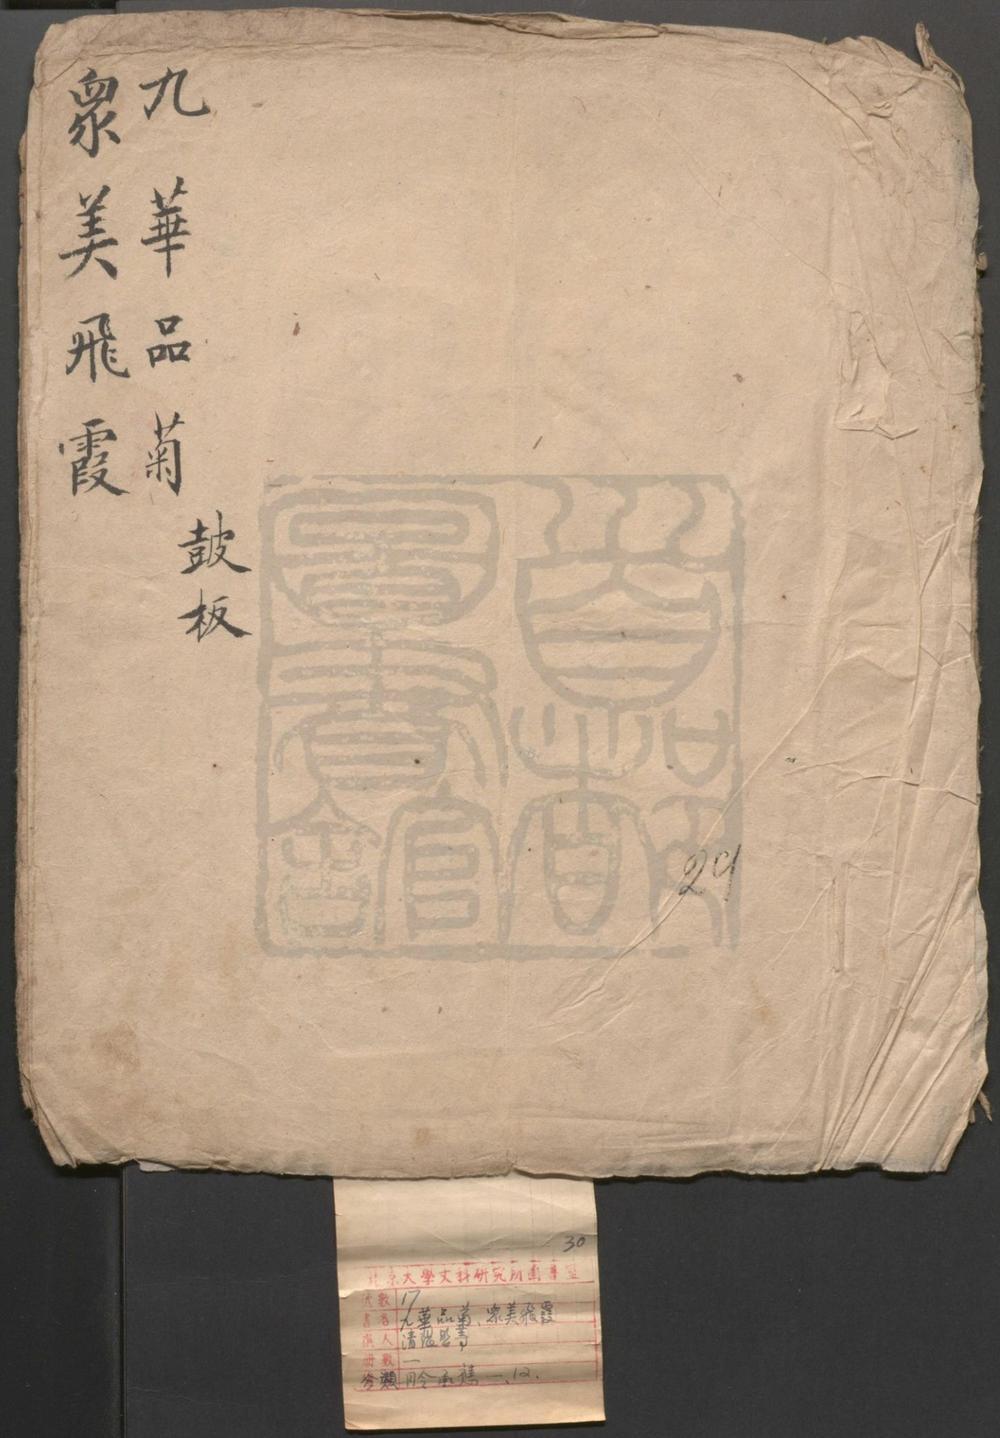 九華品菊
衆美飛霞
鼓板
首都圖書館
29
30
北京大學文科研究所圖書室
次數 17
書名 九華品菊、衆美飛霞
撰人 清
冊數 一
分類 一、12.